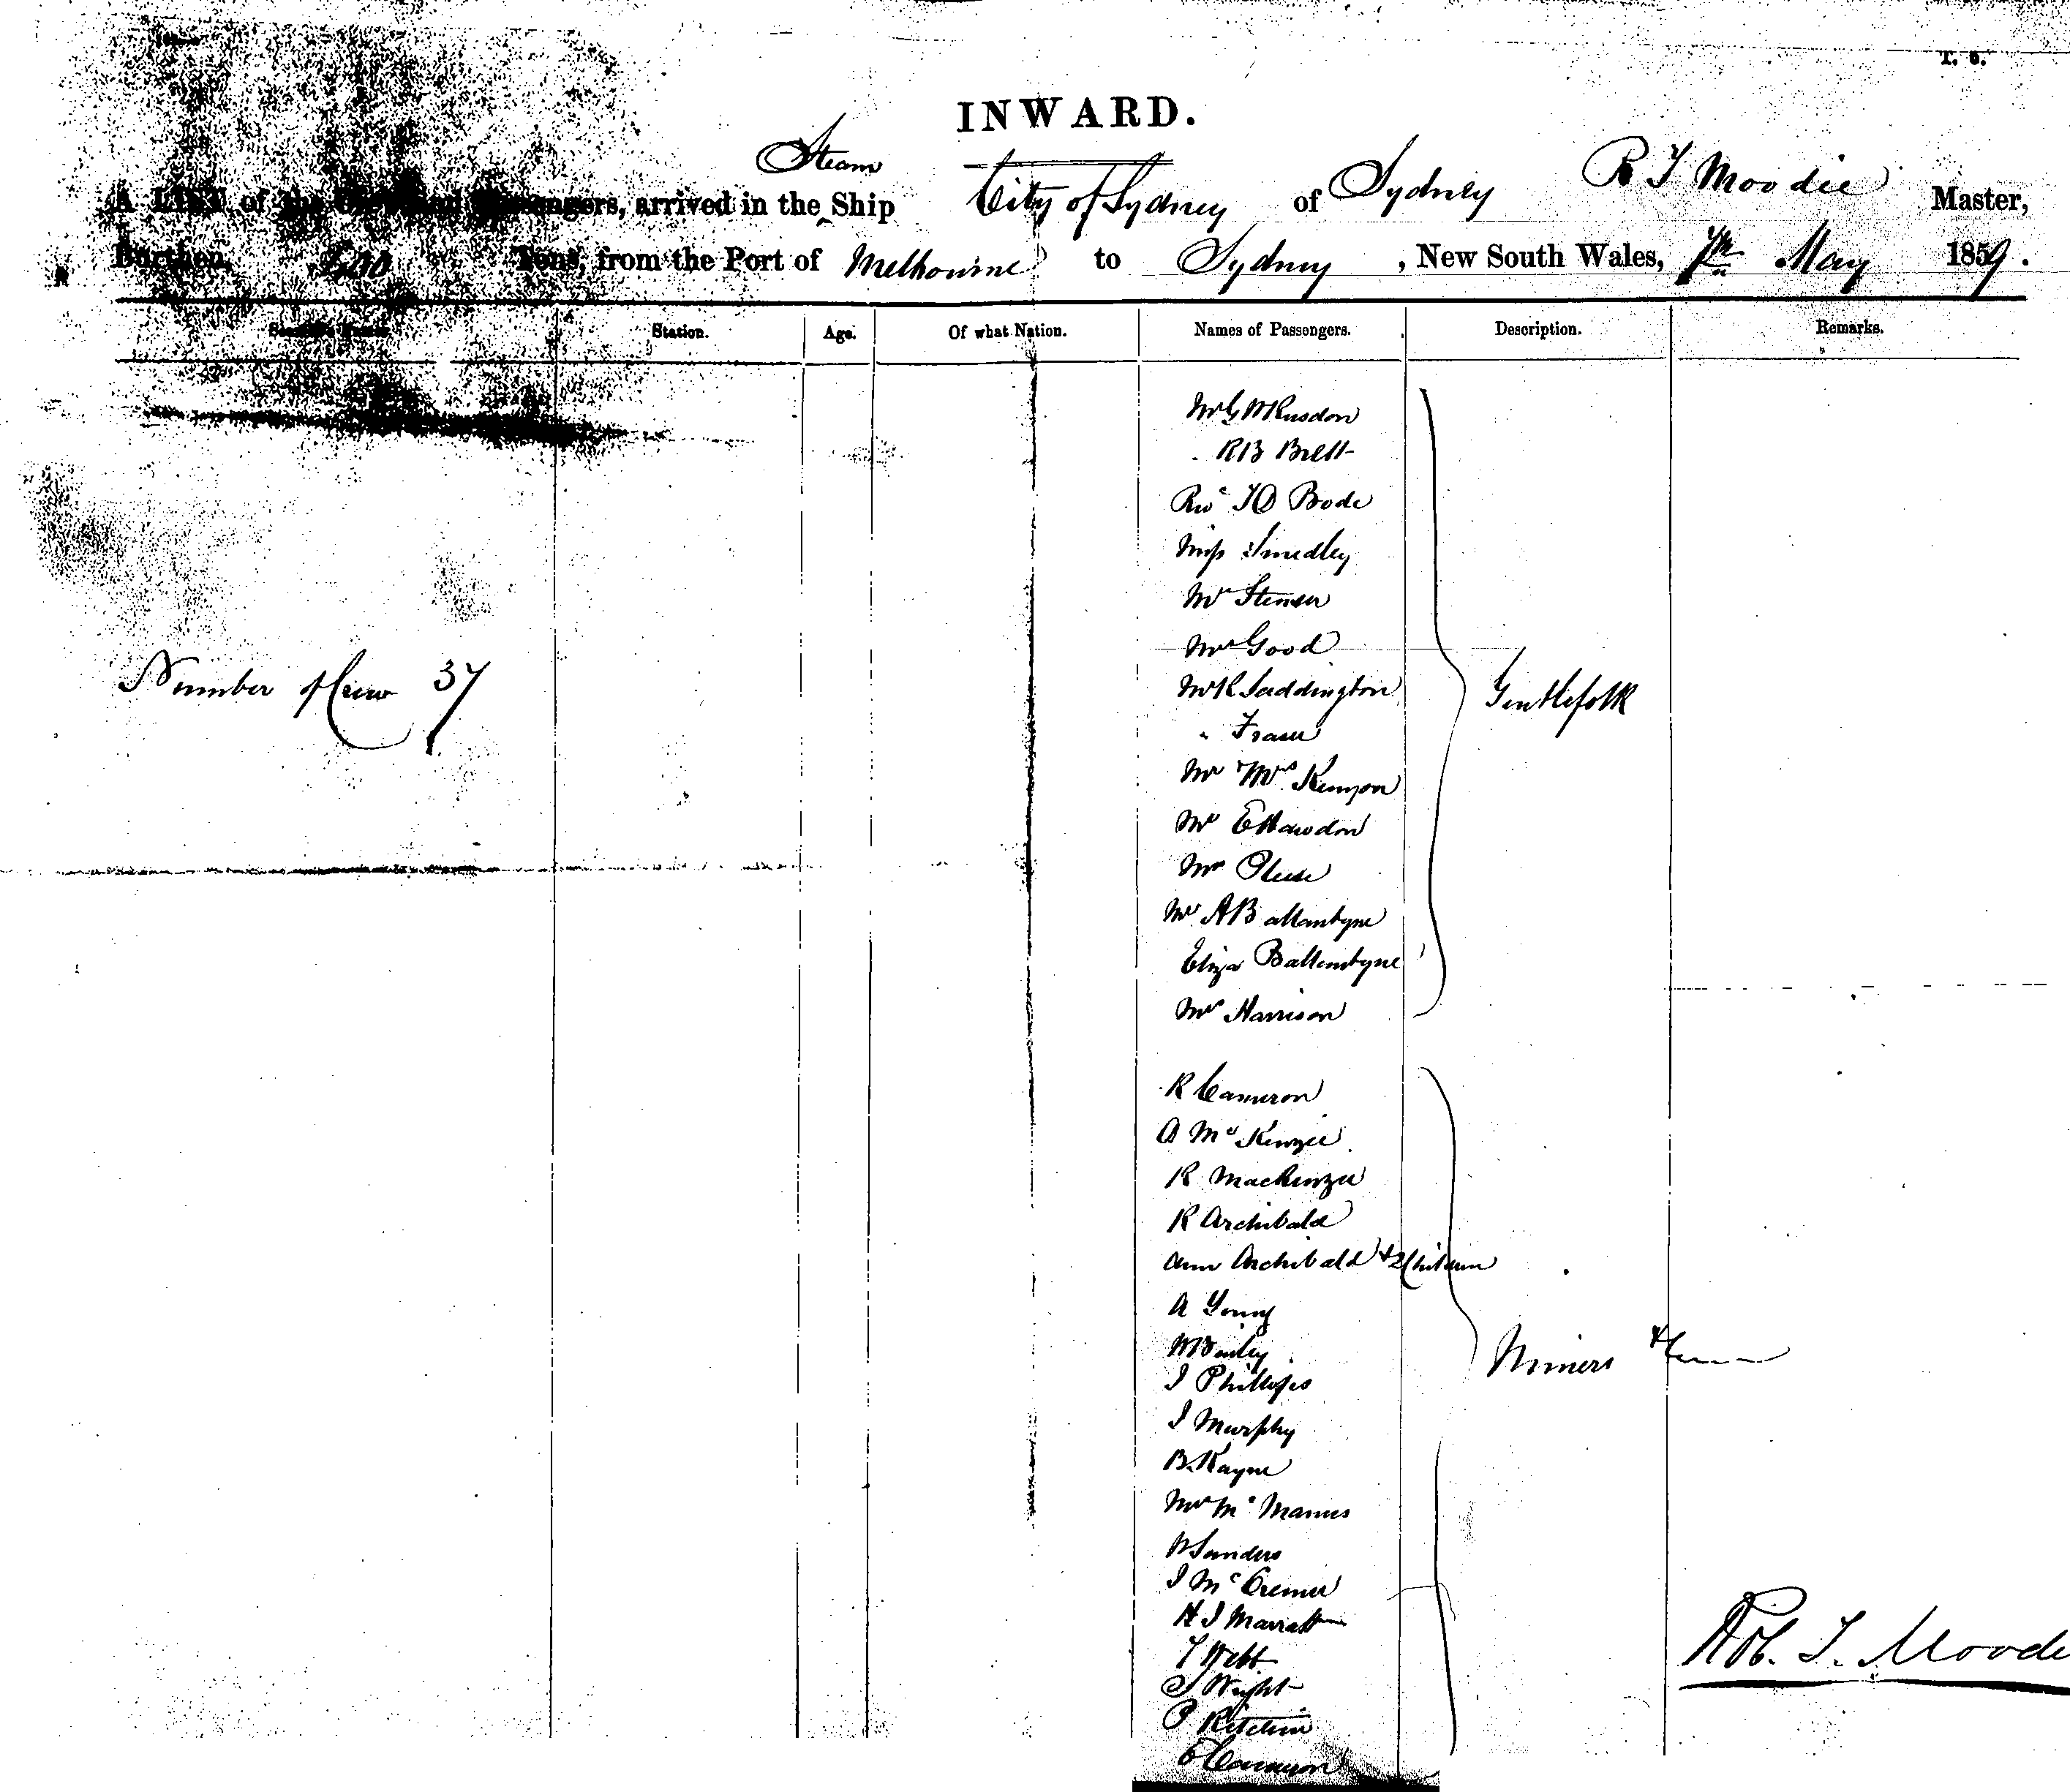 T. 6.
INWARD.
Steam
A LIST of the Crew and Passengers, arrived in the Ship City of Sydney of Sydney R T Moodie Master,
Burthen, Tons, from the Port of Melbourne to Sydney, New South Wales, May 1859.
Station. Age. Of what Nation. Names of Passengers. Description. Remarks.
Mr G W Rusdon
R B Brett
Rev T D Bode
Miss Smedley
Mr
Mr Good
Number of Crew 37
Mr R Saddington
Gentlefolk
" Fraser
Mr Mrs Kenyon
Mr E Hawdon
Mr
Mr A Ballantyne
Eliza Ballantyne
Mr Harrison
R Cameron
A McKenzie
R Mackenzie
R Archibald
Ann Archibald & 2 Children
A Young
W Bailey
Miners &c
J Phillips
J Murphy
B. Kayne
Mr McManus
W Sanders
J McCremer
H J Marratt
T Webb
Rob. T. Moodie
J Wright
P Ritchie
Cameron